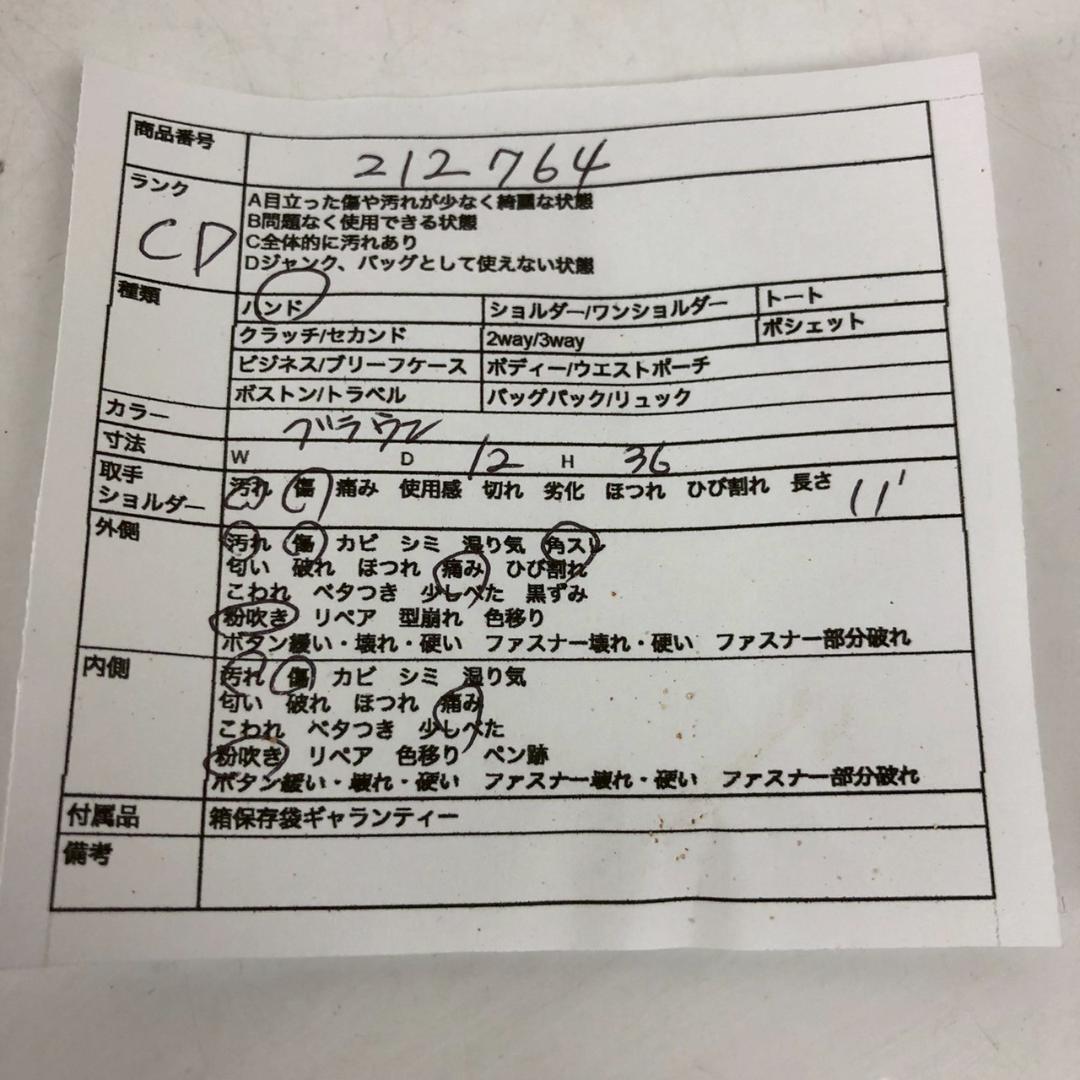 商品番号 212764
ランク CD
A目立った傷や汚れが少なく綺麗な状態
B問題なく使用できる状態
C全体的に汚れあり
Dジャンク、バッグとして使えない状態
種類 ハンド ショルダー/ワンショルダー トート
クラッチ/セカンド 2way/3way ポシェット
ビジネス/ブリーフケース ボディー/ウエストポーチ
ボストン/トラベル バッグパック/リュック
カラー ブラウン
寸法 W D 12 H 36
取手
ショルダー
汚れ 傷 痛み 使用感 切れ 劣化 ほつれ ひび割れ 長さ 11
外側 汚れ 傷 カビ シミ 湿り気 角スレ
匂い 破れ ほつれ 痛み ひび割れ
こわれ ベタつき 少しべた 黒ずみ
粉吹き リペア 型崩れ 色移り
ボタン緩い・壊れ・硬い ファスナー壊れ・硬い ファスナー部分破れ
内側 汚れ 傷 カビ シミ 湿り気
匂い 破れ ほつれ 痛み
こわれ ベタつき 少しべた
粉吹き リペア 色移り ペン跡
ボタン緩い・壊れ・硬い ファスナー壊れ・硬い ファスナー部分破れ
付属品 箱保存袋ギャランティー
備考